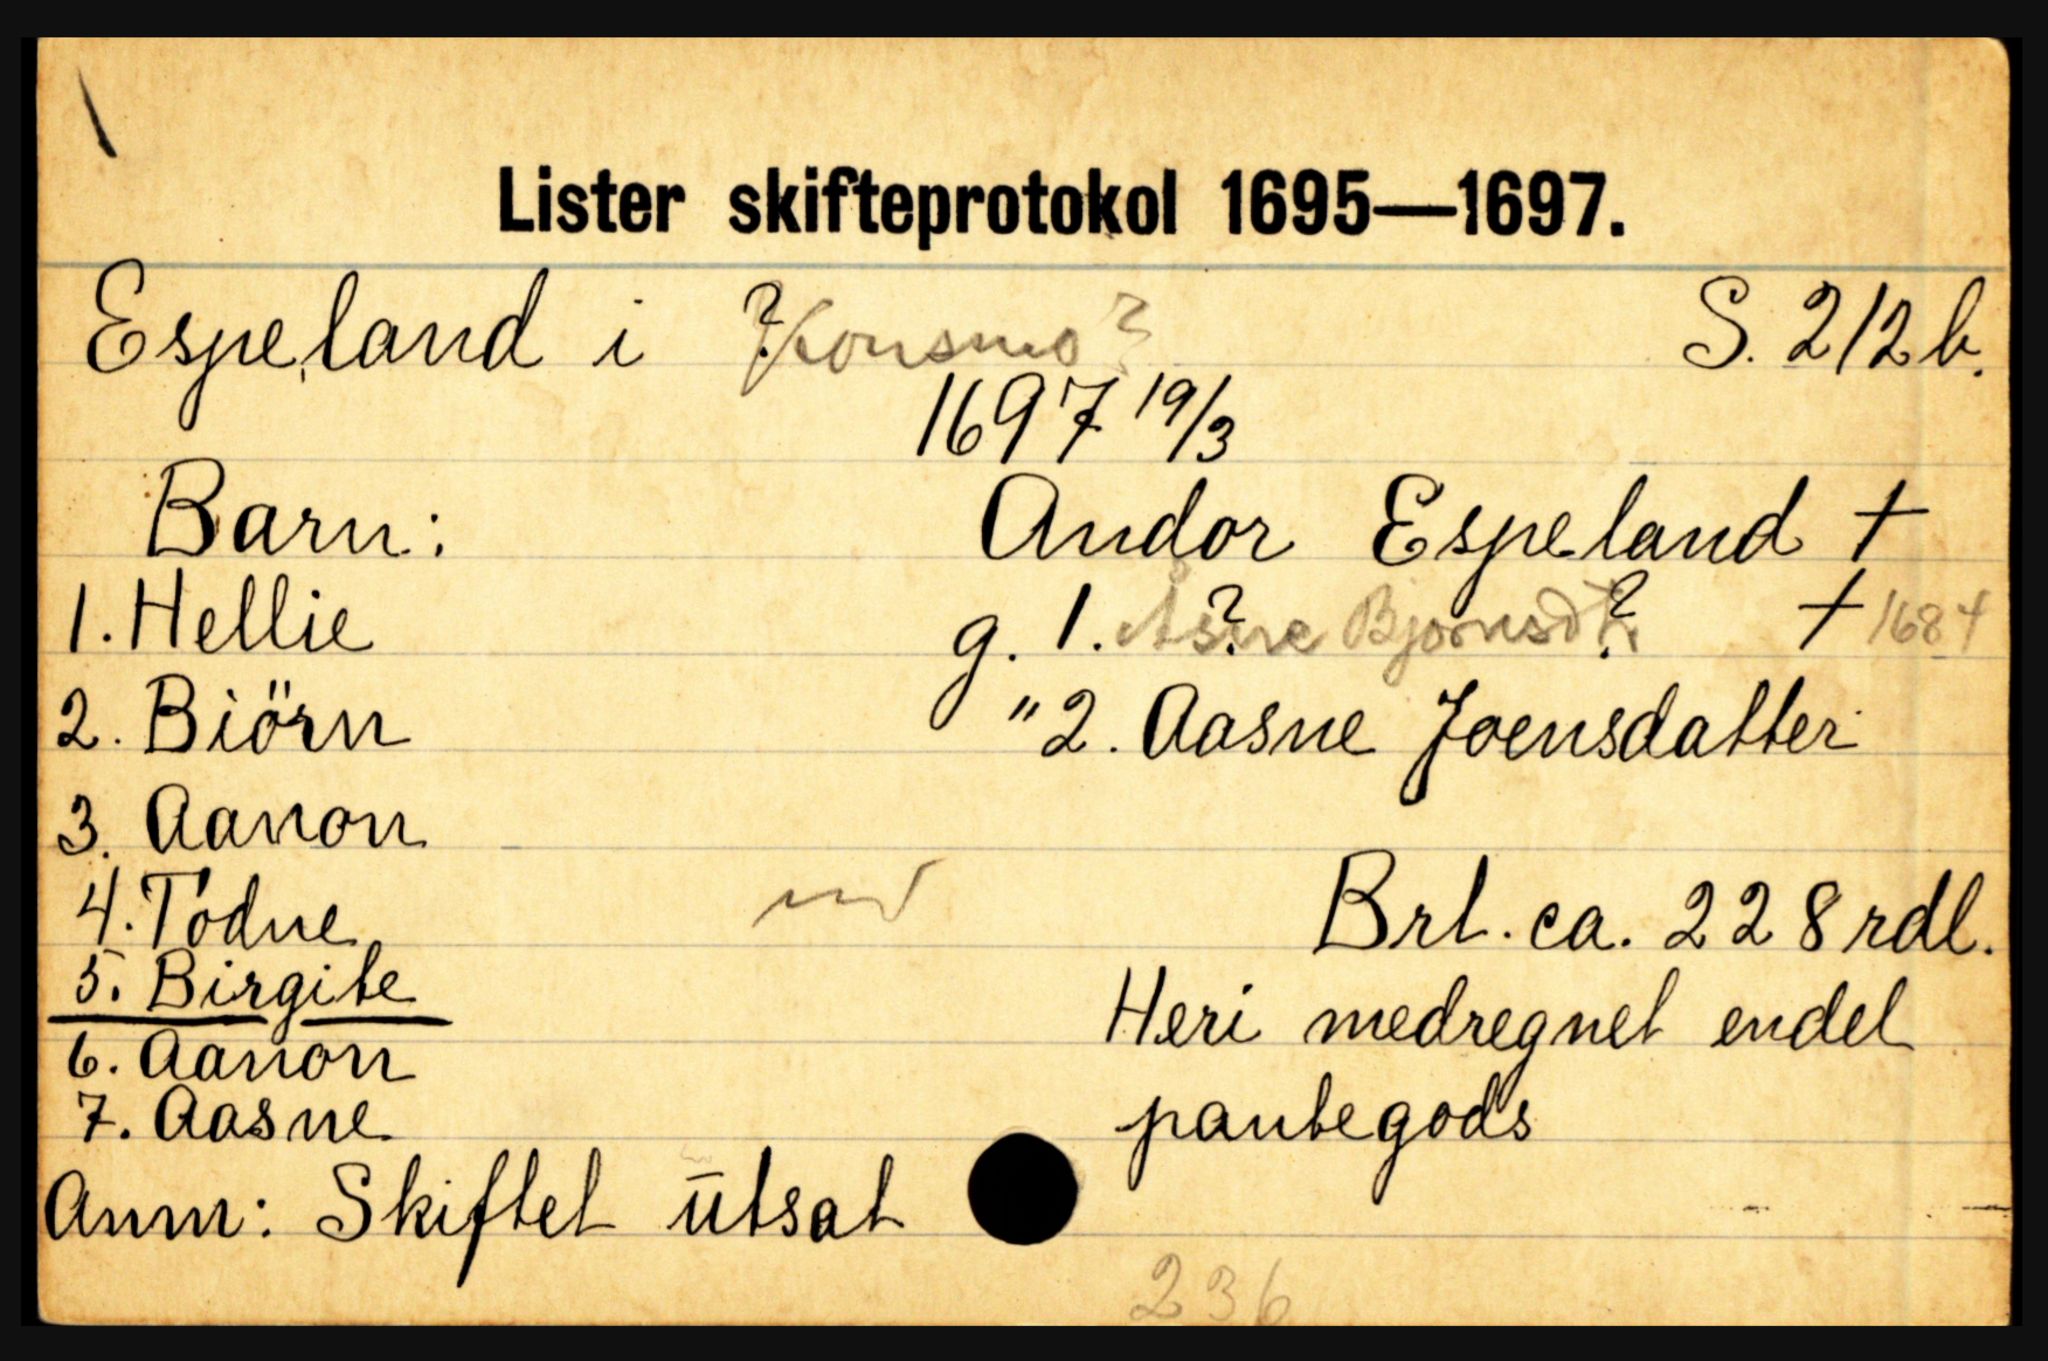 Lister skifteprotokol 1695—1697.
Espeland i ? Konsmo? S. 212 b.
1697 19/3
Barn: Andor Espeland †
1. Hellie g. 1. ? Åsne Bjørnsdt. ? † 1684
2. Biörn " 2. Aasne Joensdatter
3. Aanon
4. Todne Brt. ca. 228 rdl.
5. Birgite Heri medregnet endel
6. Aanon
7. Aasne pantegods
Anm: Skiftet ūtsat
236